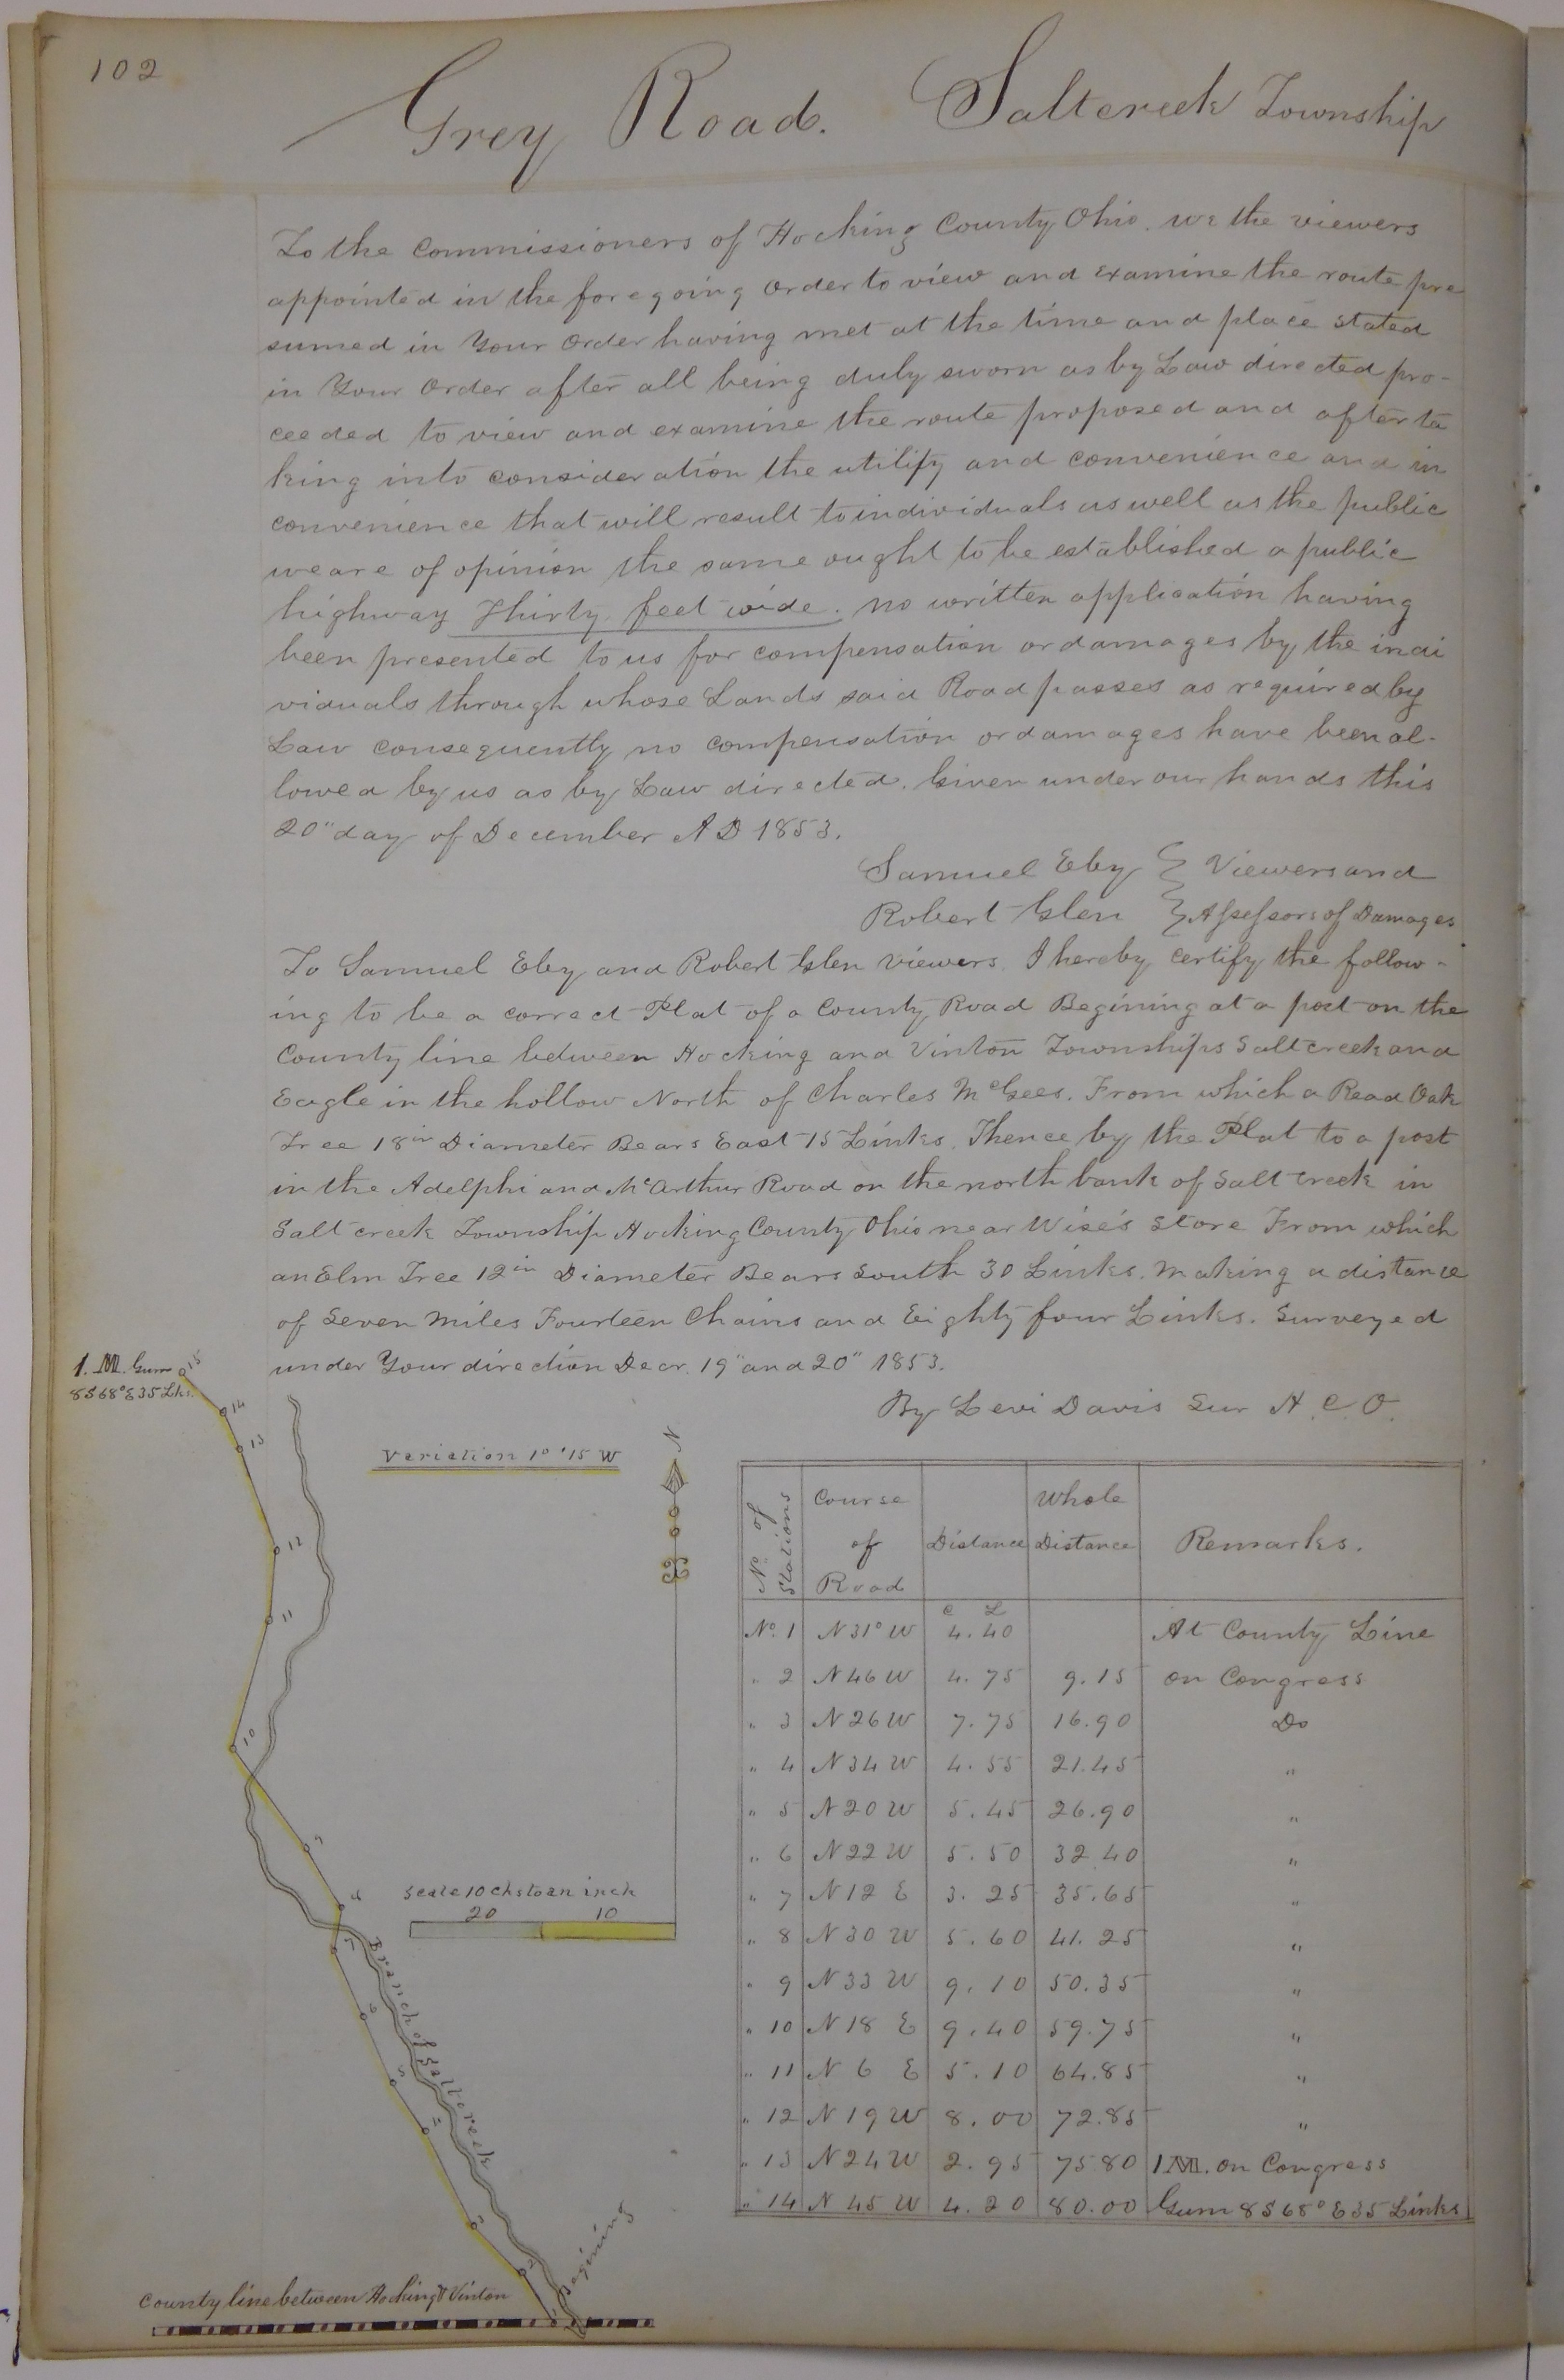 102
Grey Road. Saltcreek Township
To the Commissioners of Hocking County Ohio. We the viewers
appointed in the foregoing order to view and examine the route pre
sumed in Your order having met at the time and place stated
in Your order after all being duly sworn as by Law directed pro-
ceeded to view and examine the route proposed and after ta
king into consideration the utility and convenience and in
convenience that will result to individuals as well as the public
we are of opinion the same ought to be established a public
highway Thirty feet wide. no written application having
been presented to us for compensation or damages by the indi
viduals through whose Lands said Road passes as required by
Law consequently no compensation or damages have been al-
lowed by us as by Law directed. Given under our hands this
20" day of December A D 1853.
Samuel Eby } Viewers and
Robert Glen } Assessors of Damages
To Samuel Eby and Robert Glen Viewers. I hereby certify the follow-
ing to be a correct Plat of a County Road Begining at a post on the
County line between Hocking and Vinton Townships Saltcreek and
Eagle in the hollow North of Charles McGees. From which a Read Oak
Tree 18in Diameter Bears East 15 Links. Thence by the Plat to a post
in the Adelphi and McArthur Road on the north bank of Salt creek in
Salt creek Township Hocking County Ohio near Wise's Store From which
an Elm Tree 12in Diameter Bears South 30 Links. Making a distance
of Seven Miles Fourteen Chains and Eighty four Links. Surveyed
under Your direction Decr. 19" and 20" 1853.
By Levi Davis Sur H. C. O.
1. M. Gum
8 S 68° E 35 Lks.
15
14
13
12
11
10
9
8
7
6
5
4
3
2
1
Variation 1° '15 W
N
Scale 10 chs to an inch
20 10
Branch of Saltcreek
Begining
County line between Hocking & Vinton
No. of Stations | Course of Road | Distance | Whole Distance | Remarks.
C L
No. 1 N 31° W 4. 40 At County Line
" 2 N 46 W 4. 75 9. 15 on Congress
" 3 N 26 W 7. 75 16. 90 Do
" 4 N 34 W 4. 55 21. 45 "
" 5 N 20 W 5. 45 26. 90 "
" 6 N 22 W 5. 50 32 40 "
" 7 N 12 E 3. 25 35. 65 "
" 8 N 30 W 5. 60 41. 25 "
" 9 N 33 W 9. 10 50. 35 "
" 10 N 18 E 9. 40 59. 75 "
" 11 N 6 E 5. 10 64. 85 "
" 12 N 19 W 8. 00 72. 85 "
" 13 N 24 W 2. 95 75 80 1 M. on Congress
" 14 N 45 W 4. 20 80. 00 Gum 8 S 68° E 35 Links